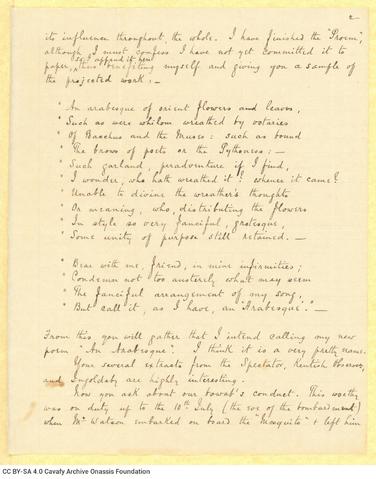 2
its influence throughout, the whole. I have finished the "Proem",
although I must confess I have not yet committed it to
So I append it here
paper, thus benefiting myself and giving you a sample of
the projected work: —
" An arabesque of orient flowers and leaves,
" Such as were whilom wreathed by votaries
" Of Bacchus and the Muses: such as bound
" The brows of poets or the Pythoness; —
" Such garland, peradventure if I find,
" I wonder, who hath wreathed it? whence it came?
" Unable to divine the wreather's thoughts
" Or meaning, who, distributing the flowers
" In style so very fanciful, grotesque,
" Some unity of purpose still retained. —
" Bear with me, friend, in mine infirmities;
" Condemn not too austerely what may seem
" The fanciful arrangement of my song,
" But call it, as I have, an "Arabesque". —
From this you will gather that I intend calling my new
poem "An Arabesque". I think it is a very pretty name.
Your several extracts from the Spectator, Kentish Observer,
and Ingoldsby are highly interesting.
Now you ask about our bowab's conduct. This worthy
was on duty up to the 10th July (the eve of the bombardment)
when Mr Watson embarked on board the "Mosquito" & left him
CC BY-SA 4.0 Cavafy Archive Onassis Foundation